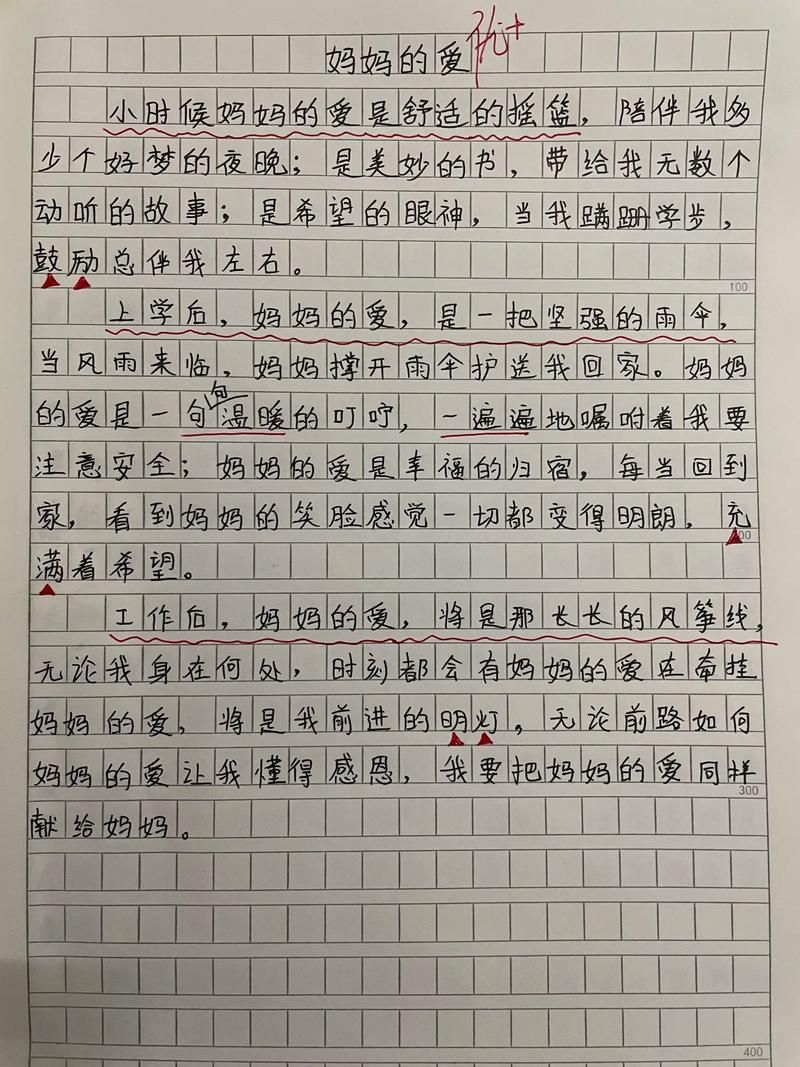 妈妈的爱 优+
小时候妈妈的爱是舒适的摇篮，陪伴我多
少个好梦的夜晚；是美妙的书，带给我无数个
动听的故事；是希望的眼神，当我蹒跚学步，
鼓励总伴我左右。
100
上学后，妈妈的爱，是一把坚强的雨伞，
当风雨来临，妈妈撑开雨伞护送我回家。妈妈
句
的爱是一句温暖的叮咛，一遍遍地嘱咐着我要
注意安全；妈妈的爱是幸福的归宿，每当回到
家，看到妈妈的笑脸感觉一切都变得明朗，充
200
满着希望。
工作后，妈妈的爱，将是那长长的风筝线，
无论我身在何处，时刻都会有妈妈的爱在牵挂
妈妈的爱，将是我前进的明灯，无论前路如何
妈妈的爱让我懂得感恩，我要把妈妈的爱同样
300
献给妈妈。
400